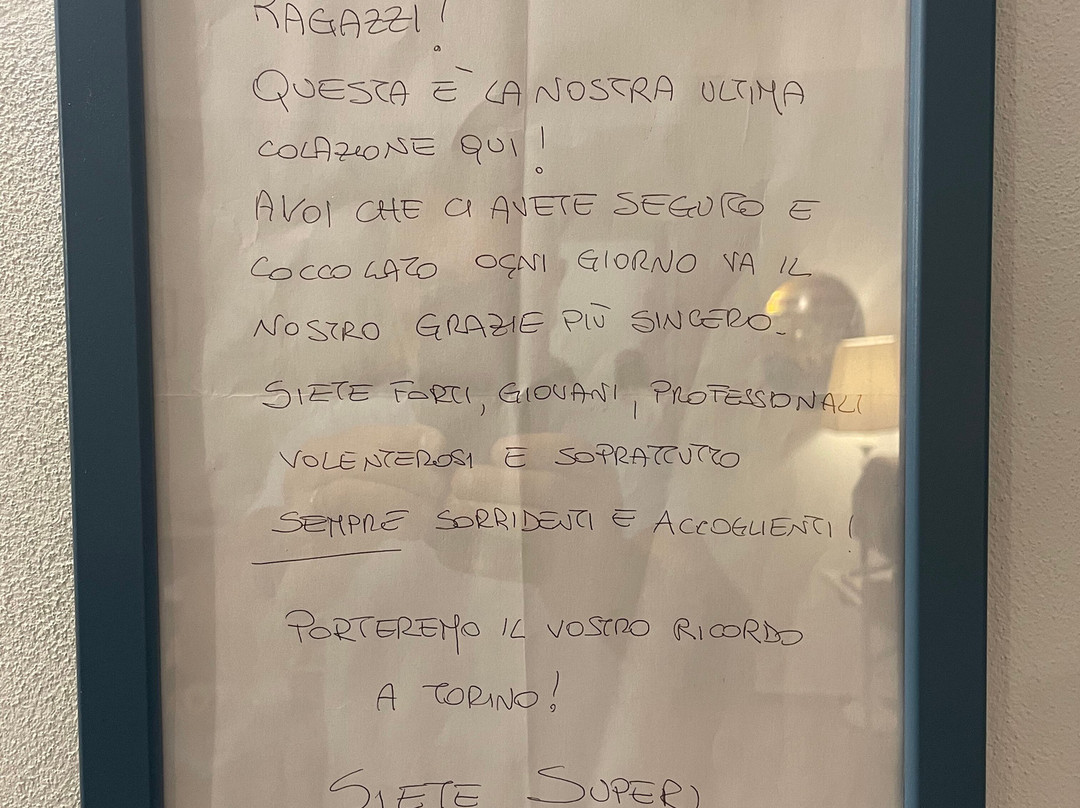 RAGAZZI!
QUESTA È LA NOSTRA ULTIMA
COLAZIONE QUI!
A VOI CHE CI AVETE SEGUITO E
COCCOLATO OGNI GIORNO VA IL
NOSTRO GRAZIE PIÙ SINCERO.
SIETE FORTI, GIOVANI, PROFESSIONALI
VOLENTEROSI E SOPRATTUTTO
SEMPRE SORRIDENTI E ACCOGLIENTI!
PORTEREMO IL VOSTRO RICORDO
A TORINO!
SIETE SUPER!